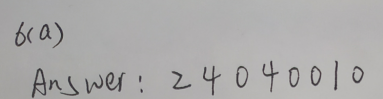 6(a)
Answer: 24040010